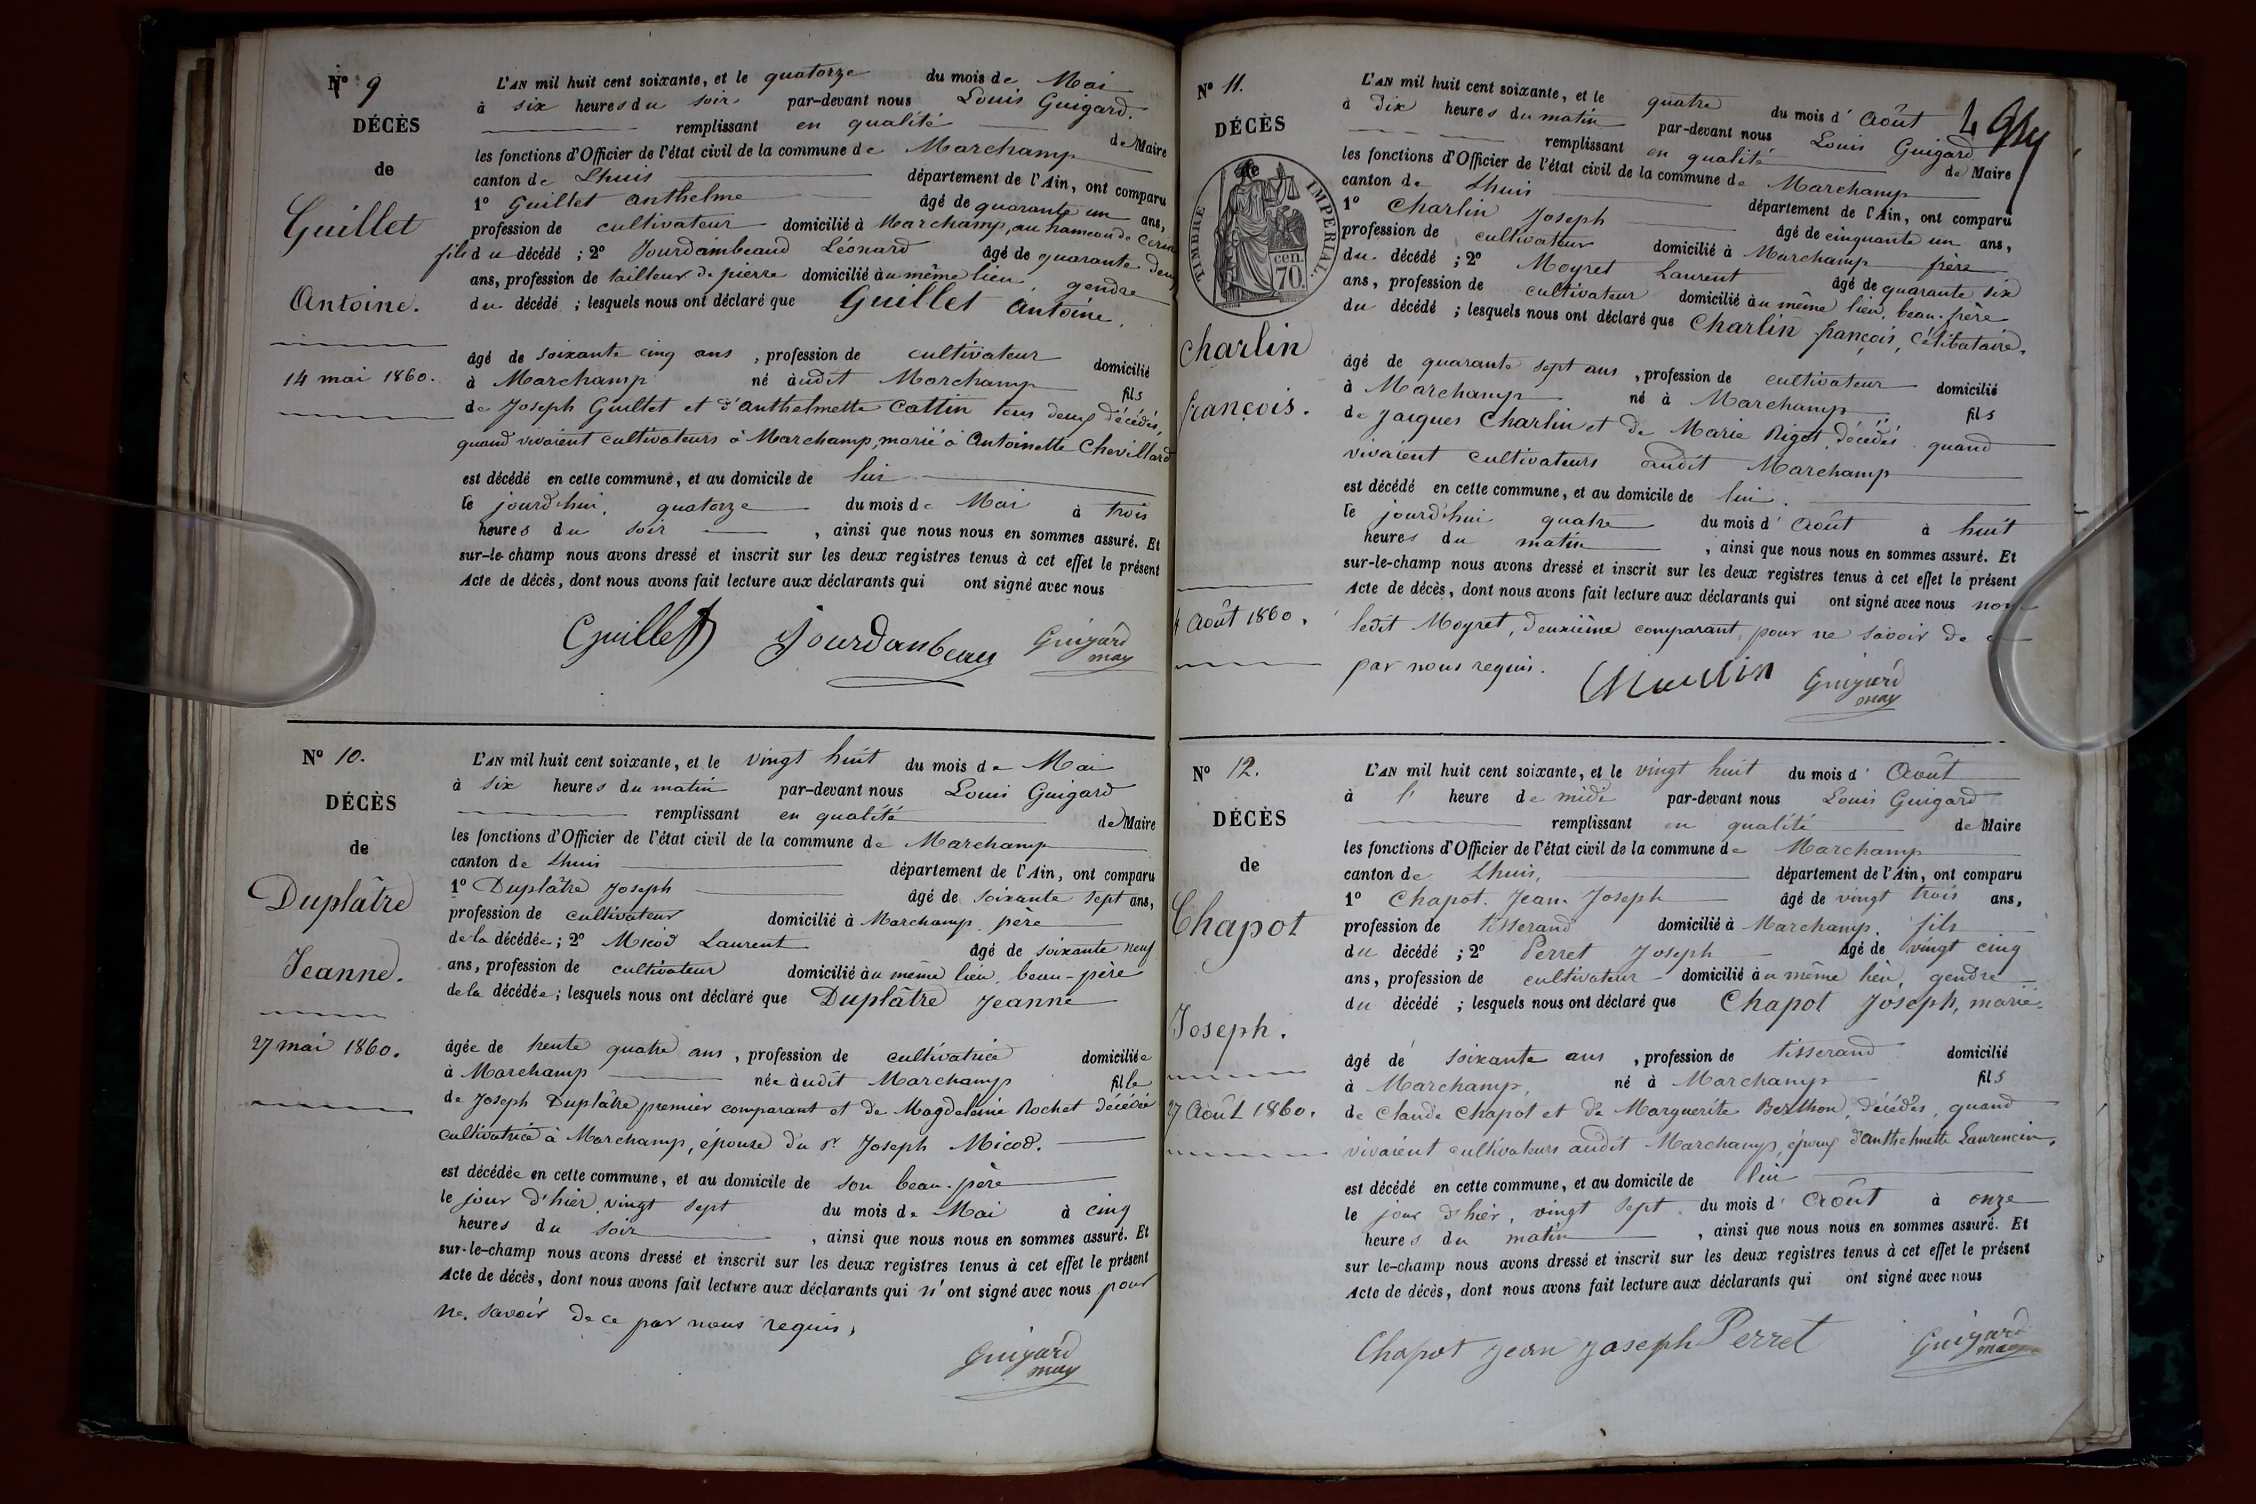 Nº 9
DÉCÈS
de
Guillet
Antoine.
14 mai 1860.
L'AN mil huit cent soixante, et le quatorze du mois de Mai
à six heures du soir par-devant nous Louis Guigard.
remplissant en qualité de Maire
les fonctions d'Officier de l'état civil de la commune de Marchamp
canton de Lhuis département de l'Ain, ont comparu
1º Guillet Anthelme âgé de quarante un ans,
profession de cultivateur domicilié à Marchamp, au hameau de Cerin
fils du décédé ; 2º Jourdambeaud Léonard âgé de quarante deux
ans, profession de tailleur de pierre domicilié au même lieu, gendre
du décédé ; lesquels nous ont déclaré que Guillet Antoine,
âgé de soixante cinq ans, profession de cultivateur domicilié
à Marchamp né audit Marchamp fils
de Joseph Guillet et d'Anthelmette Cattin tous deux décédés,
quand vivaient cultivateurs à Marchamp, marié à Antoinette Chevillard
est décédé en cette commune, et au domicile de lui
le jourd'hui, quatorze du mois de Mai à trois
heures du soir, ainsi que nous nous en sommes assuré. Et
sur-le-champ nous avons dressé et inscrit sur les deux registres tenus à cet effet le présent
Acte de décès, dont nous avons fait lecture aux déclarants qui ont signé avec nous
Guillet Jourdanbeau Guigard
may
Nº 10.
DÉCÈS
de
Duplâtre
Jeanne.
27 mai 1860.
L'AN mil huit cent soixante, et le vingt huit du mois de Mai
à six heures du matin par-devant nous Louis Guigard
remplissant en qualité de Maire
les fonctions d'Officier de l'état civil de la commune de Marchamp
canton de Lhuis département de l'Ain, ont comparu
1º Duplâtre Joseph âgé de soixante sept ans,
profession de cultivateur domicilié à Marchamp père
de la décédée ; 2º Micod Laurent âgé de soixante neuf
ans, profession de cultivateur domicilié au même lieu, beau-père
de la décédée ; lesquels nous ont déclaré que Duplâtre Jeanne
âgée de trente quatre ans, profession de cultivatrice domiciliée
à Marchamp née audit Marchamp fille
de Joseph Duplâtre premier comparant et de Magdeleine Rochet décédée
cultivatrice à Marchamp, épouse du sr Joseph Micod.
est décédée en cette commune, et au domicile de son beau-père
le jour d'hier, vingt sept du mois de Mai à cinq
heures du soir, ainsi que nous nous en sommes assuré. Et
sur-le-champ nous avons dressé et inscrit sur les deux registres tenus à cet effet le présent
Acte de décès, dont nous avons fait lecture aux déclarants qui n'ont signé avec nous pour
ne savoir de ce par nous requis,
Guigard
may
Nº 11.
DÉCÈS
TIMBRE IMPERIAL.
cen.
70.
Charlin
françois.
4 Août 1860.
L'AN mil huit cent soixante, et le quatre du mois d'Août
à dix heures du matin par-devant nous Louis Guigard
remplissant en qualité de Maire
les fonctions d'Officier de l'état civil de la commune de Marchamp
canton de Lhuis département de l'Ain, ont comparu
1º Charlin Joseph âgé de cinquante un ans,
profession de cultivateur domicilié à Marchamp frère
du décédé ; 2º Moyret Laurent âgé de quarante six
ans, profession de cultivateur domicilié au même lieu, beau-frère
du décédé ; lesquels nous ont déclaré que Charlin françois, célibataire,
âgé de quarante sept ans, profession de cultivateur domicilié
à Marchamp né à Marchamp fils
de Jacques Charlin et de Marie Rigot, décédés quand
vivaient cultivateurs audit Marchamp
est décédé en cette commune, et au domicile de lui.
le jourd'hui quatre du mois d'Août à huit
heures du matin, ainsi que nous nous en sommes assuré. Et
sur-le-champ nous avons dressé et inscrit sur les deux registres tenus à cet effet le présent
Acte de décès, dont nous avons fait lecture aux déclarants qui ont signé avec nous non
ledit Moyret, deuxième comparant, pour ne savoir de ce
par nous requis.
Charlin Guigard
may
Nº 12.
DÉCÈS
de
Chapot
Joseph.
27 Août 1860.
L'AN mil huit cent soixante, et le vingt huit du mois d'Août
à l'heure de midi par-devant nous Louis Guigard
remplissant en qualité de Maire
les fonctions d'Officier de l'état civil de la commune de Marchamp
canton de Lhuis, département de l'Ain, ont comparu
1º Chapot Jean-Joseph âgé de vingt trois ans,
profession de tisserand domicilié à Marchamp. fils
du décédé ; 2º Perret Joseph âgé de vingt cinq
ans, profession de cultivateur domicilié au même lieu, gendre
du décédé ; lesquels nous ont déclaré que Chapot Joseph, marié
âgé de soixante ans, profession de tisserand domicilié
à Marchamp, né à Marchamp fils
de Claude Chapot et de Marguerite Berthon, décédés, quand
vivaient cultivateurs audit Marchamp, époux d'Anthelmette Laurencin,
est décédé en cette commune, et au domicile de lui
le jour d'hier, vingt sept du mois d'Août à onze
heures du matin, ainsi que nous nous en sommes assuré. Et
sur le-champ nous avons dressé et inscrit sur les deux registres tenus à cet effet le présent
Acte de décès, dont nous avons fait lecture aux déclarants qui ont signé avec nous
Chapot Jean Joseph Perret Guigard
may